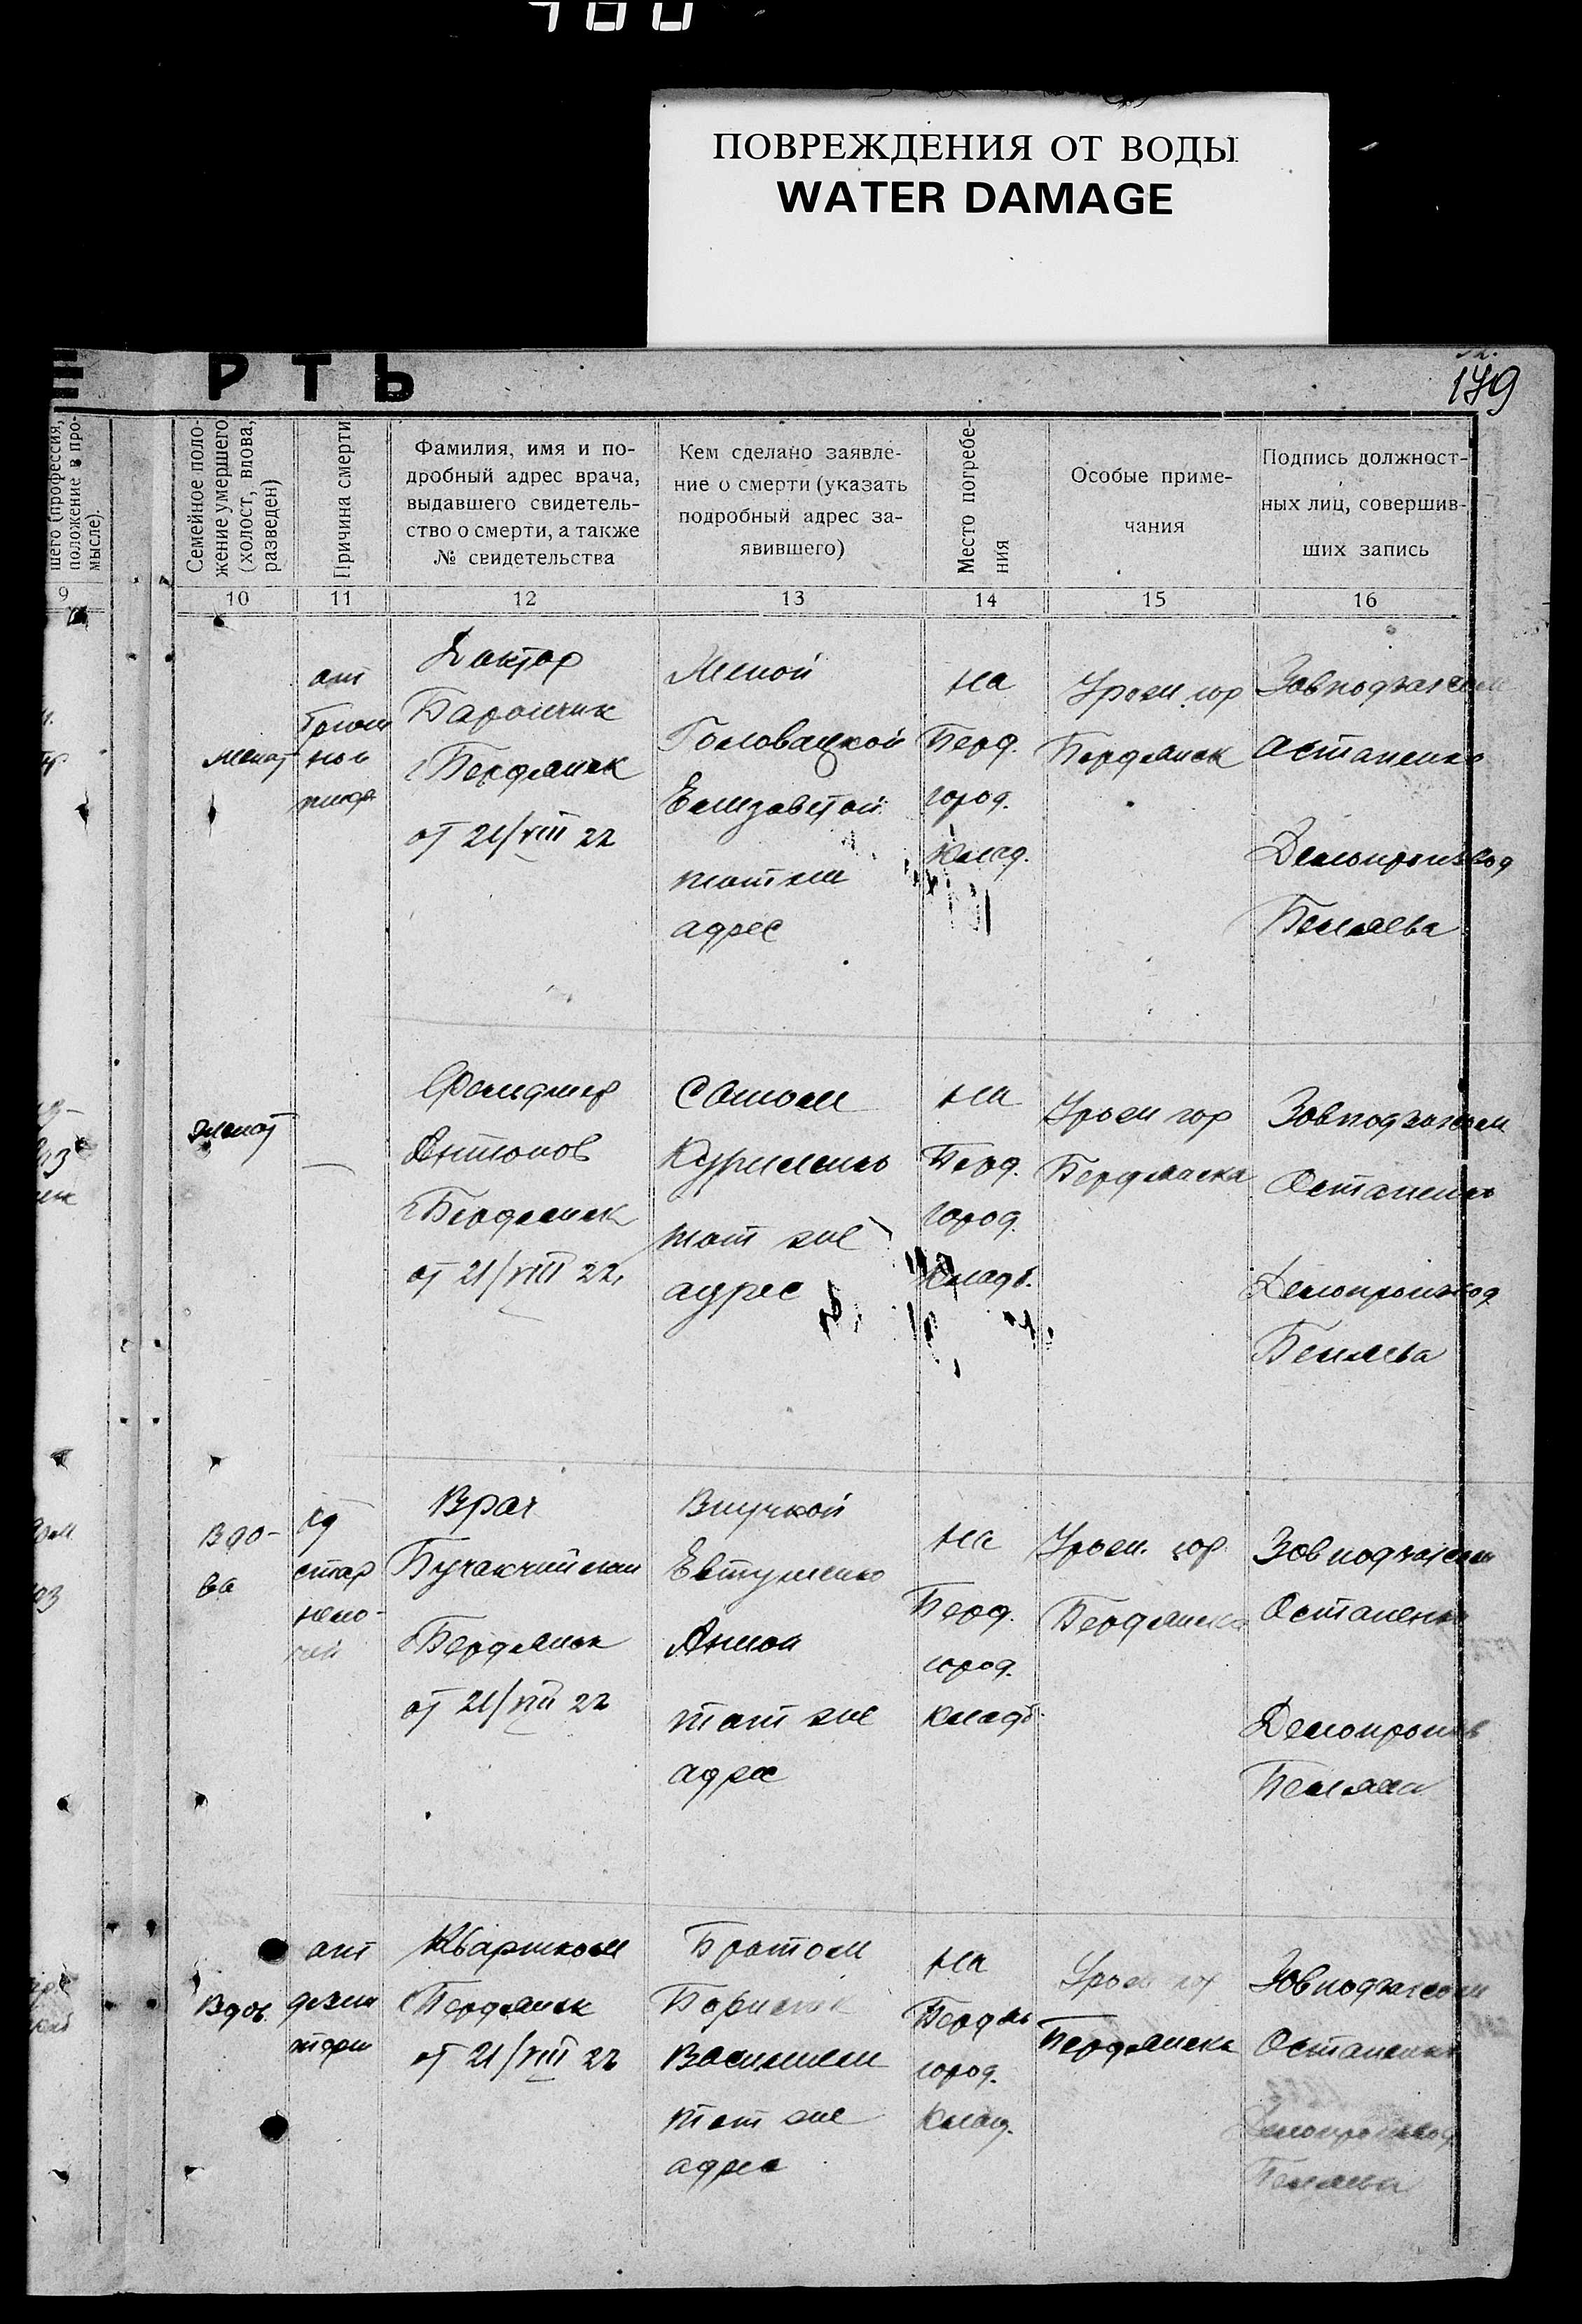 ПОВРЕЖДЕНИЯ ОТ ВОДЫ
WATER DAMAGE
Е РТЬ
179
шего (профессия,
положение в про-
мысле).
Семейное поло-
жение умершего
(холост, вдова,
разведен)
Причина смерти
Фамилия, имя и по-
дробный адрес врача,
выдавшего свидетель-
ство о смерти, а также
№ свидетельства
Кем сделано заявле-
ние о смерти (указать
подробный адрес за-
явившего)
Место погребе-
ния
Особые приме-
чания
Подпись должност-
ных лиц, совершив-
ших запись
9
10
11
12
13
14
15
16
женат
от
брюш
ной
тиф
Доктор
г Бердянск
от 21/VIII 22
Женой
Головацкой
Елизаветой
тот же
адрес
на
Берд.
город.
клад.
Урож. гор
Бердянск
Завподзагсом
Остапенко
Делопроизвод
Беляева
женат
—
Фельдшер
Антонов
г Бердянск
от 21/VIII 22,
Сыном
тот же
адрес
на
Берд.
город.
кладб.
Урож гор
Бердянска
Завподзагсом
Остапенко
Делопроизвод
Беляева
Вдо-
ва
от
стар
Врач
г Бердянск
от 21/VIII 22
Внучкой
Евтушенко
Анной
тот же
адрес
на
Берд.
город.
кладб.
Урож. гор
Бердянска
Завподзагсом
Остапенко
Делопроизв
Беляева
Вдов.
от
дизен
терии
г Бердянск
от 21/VIII 22
Братом
Василием
тот же
адрес
на
Бердян
город.
клад.
Урож гор
Бердянска
Завподзагсом
Остапенко
Делопроизвод
Беляева